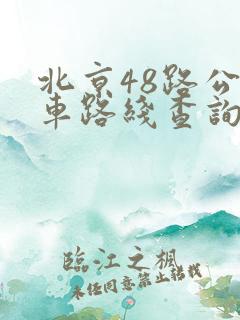 北京48路公
車路綫查詢
臨江之楓
未经同意禁止搬载